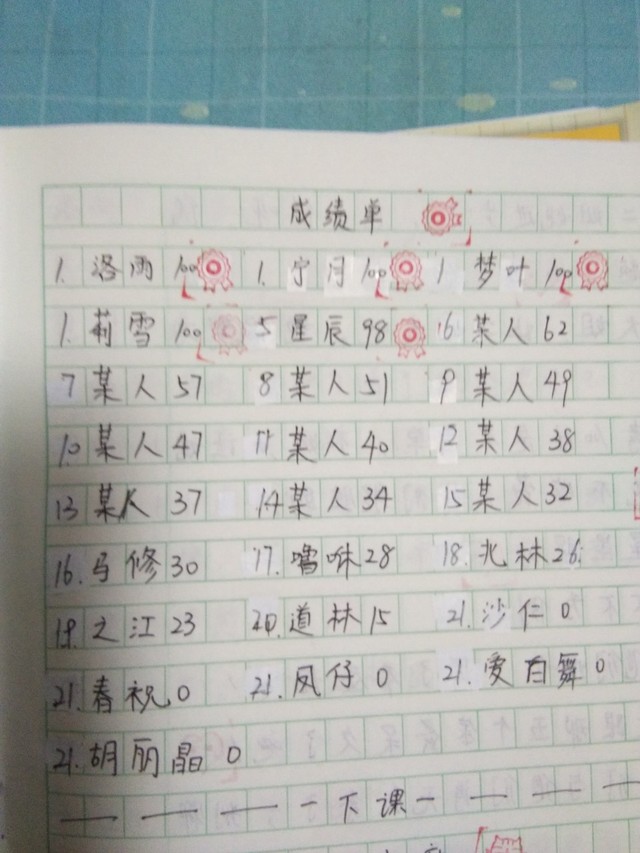 成绩单
1. 洛雨 100 1. 宁月 100 1 梦叶 100
1. 莉雪 100 5 星辰 98 6 某人 62
7 某人 57 8 某人 51 9 某人 49
10 某人 47 11 某人 40 12 某人 38
13 某人 37 14 某人 34 15 某人 32
16. 马修 30 17. 噜咻 28 18. 北林 26
19. 之江 23 20. 道林 15 21. 沙仁 0
21. 春祝 0 21. 凤仔 0 21. 爱百舞 0
21. 胡丽晶 0
— — — — 下课 — — — —